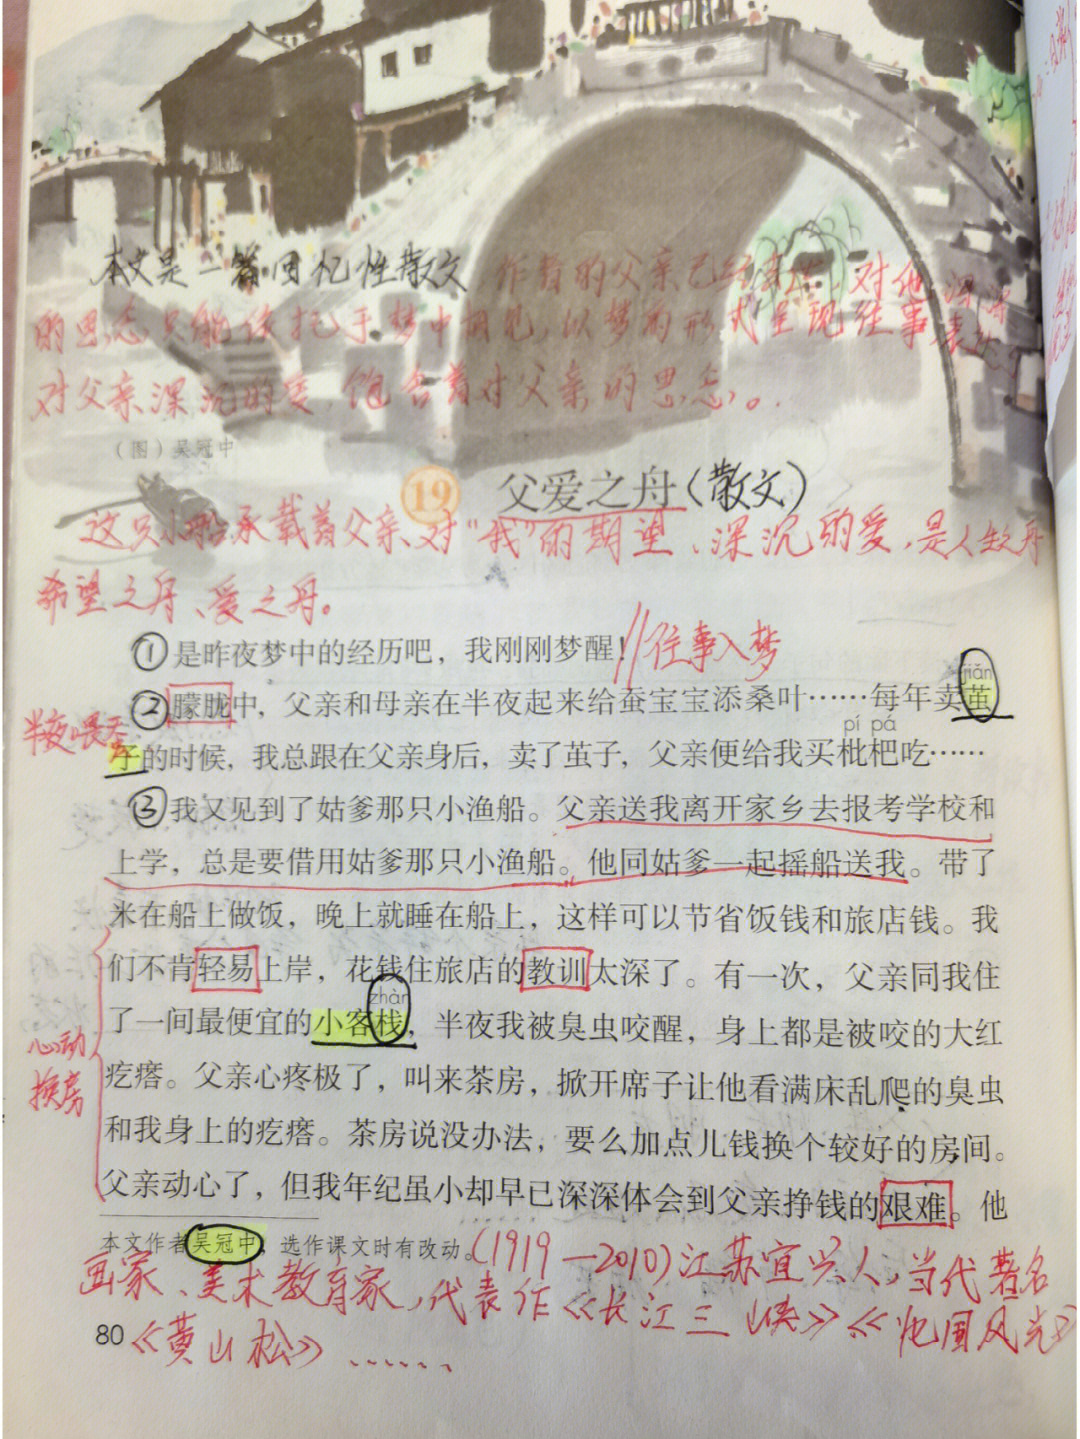 本文是一篇回忆性散文 作者的父亲已经去世，对他深深
的思念只能依托于梦中相见，以梦的形式呈现往事，表达
对父亲深沉的爱，饱含着对父亲的思念。
（图）吴冠中
19 父爱之舟（散文）
这只小船承载着父亲对“我”的期望、深沉的爱，是人生之舟
希望之舟、爱之舟。
①是昨夜梦中的经历吧，我刚刚梦醒！//往事入梦
jiǎn
②朦胧中，父亲和母亲在半夜起来给蚕宝宝添桑叶……每年卖茧
半夜喂
pí pá
子的时候，我总跟在父亲身后，卖了茧子，父亲便给我买枇杷吃……
③我又见到了姑爹那只小渔船。父亲送我离开家乡去报考学校和
上学，总是要借用姑爹那只小渔船。他同姑爹一起摇船送我。带了
米在船上做饭，晚上就睡在船上，这样可以节省饭钱和旅店钱。我
们不肯轻易上岸，花钱住旅店的教训太深了。有一次，父亲同我住
zhàn
了一间最便宜的小客栈，半夜我被臭虫咬醒，身上都是被咬的大红
心动
换房
疙瘩。父亲心疼极了，叫来茶房，掀开席子让他看满床乱爬的臭虫
和我身上的疙瘩。茶房说没办法，要么加点儿钱换个较好的房间。
父亲动心了，但我年纪虽小却早已深深体会到父亲挣钱的艰难。他
本文作者吴冠中，选作课文时有改动。（1919—2010）江苏宜兴人，当代著名
画家、美术教育家，代表作《长江三峡》《北国风光》
80 《黄山松》……